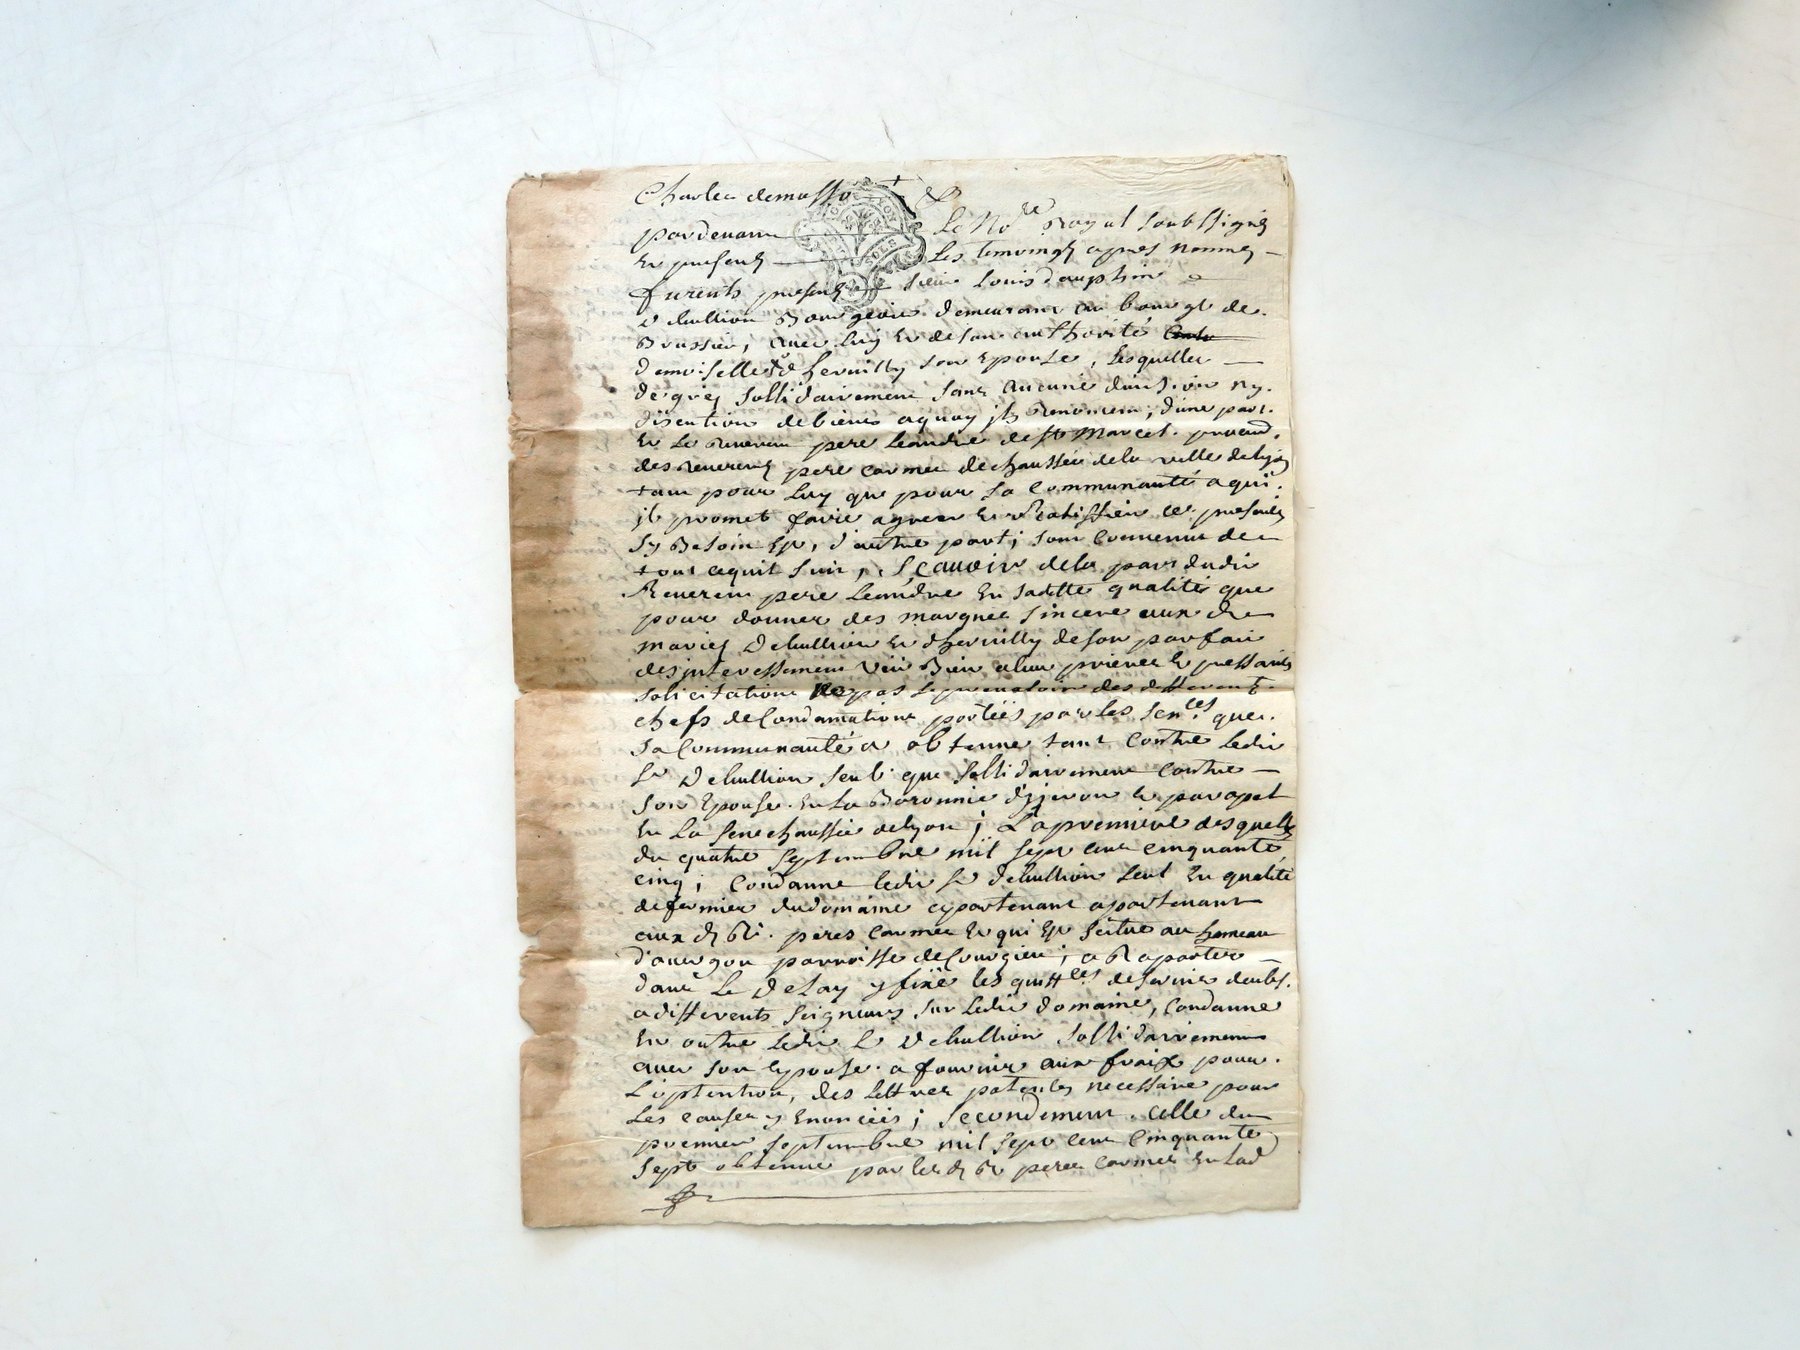 Charles demasso
pardevant Le No.re Royal soubssigné
Et presents Les temoings apres nommes
furents presents sieur Louis dauphin
Dehullion Bourgeois demeurant au bourgt de
Brussieu, avec luy Et de son authorité
demoiselle D'hervilly son Epouse, Lesquelles
de grés sollidairement sans aucune division ny
discution de biens aquoy ils Renoncent, d'une part.
Et Le Reverent pere Leandre de St Marcel.
des reverents pere carmes dechaussée de la ville de lyon
tant pour Luy que pour sa Communauté a qui.
il promet faire agreer Et Ratiffier ces presentes
sy Besoin Est, d'autre part; sont Convenus de
tout cequit suit, Sçavoir de la part dudit
Reverent pere Leandre En sadtte qualité que
pour donner des marques sincere aux dts
mariés Dehullion Et dhervilly de son parfait
desinteressement veut Bien a leur prieres Et pressantes
solicitations ne pas se prevaloir des differents
chefs de Condamations portées par les Sen.ces que.
sa Communauté a obtenue tant Contre Ledit
Sr Dehullion seul que sollidairement Contre
son Epouse. En La Baronnie d'yzeron Et par apel
En La Senechaussée de lyon; La premiere desquelles
du quatre septembre mil sept cent cinquante
cinq; Condanne ledit Sr Dehullion seul En qualité
de fermier dudomaine apartenant apartenant
aux ds Rds. peres carmes Et qui Est scitue au hameau
d'avergon parroisse de Courzieu; a Raporter
dans Le Delay y fixé les quitt.ces de servis deubs.
a differents seigneurs sur Ledit domaine, Condanne
En outre Ledit Sr Dehullion sollidairement
avec son Epouse. a fournir aux fraix pour.
L'optention, des Lettres patentes necessaire pour
Les causes y Enoncées; Secondement. celle du
premier septembre mil sept cent Cinquante
sept obtenue par les ds Rds peres carmes En lad